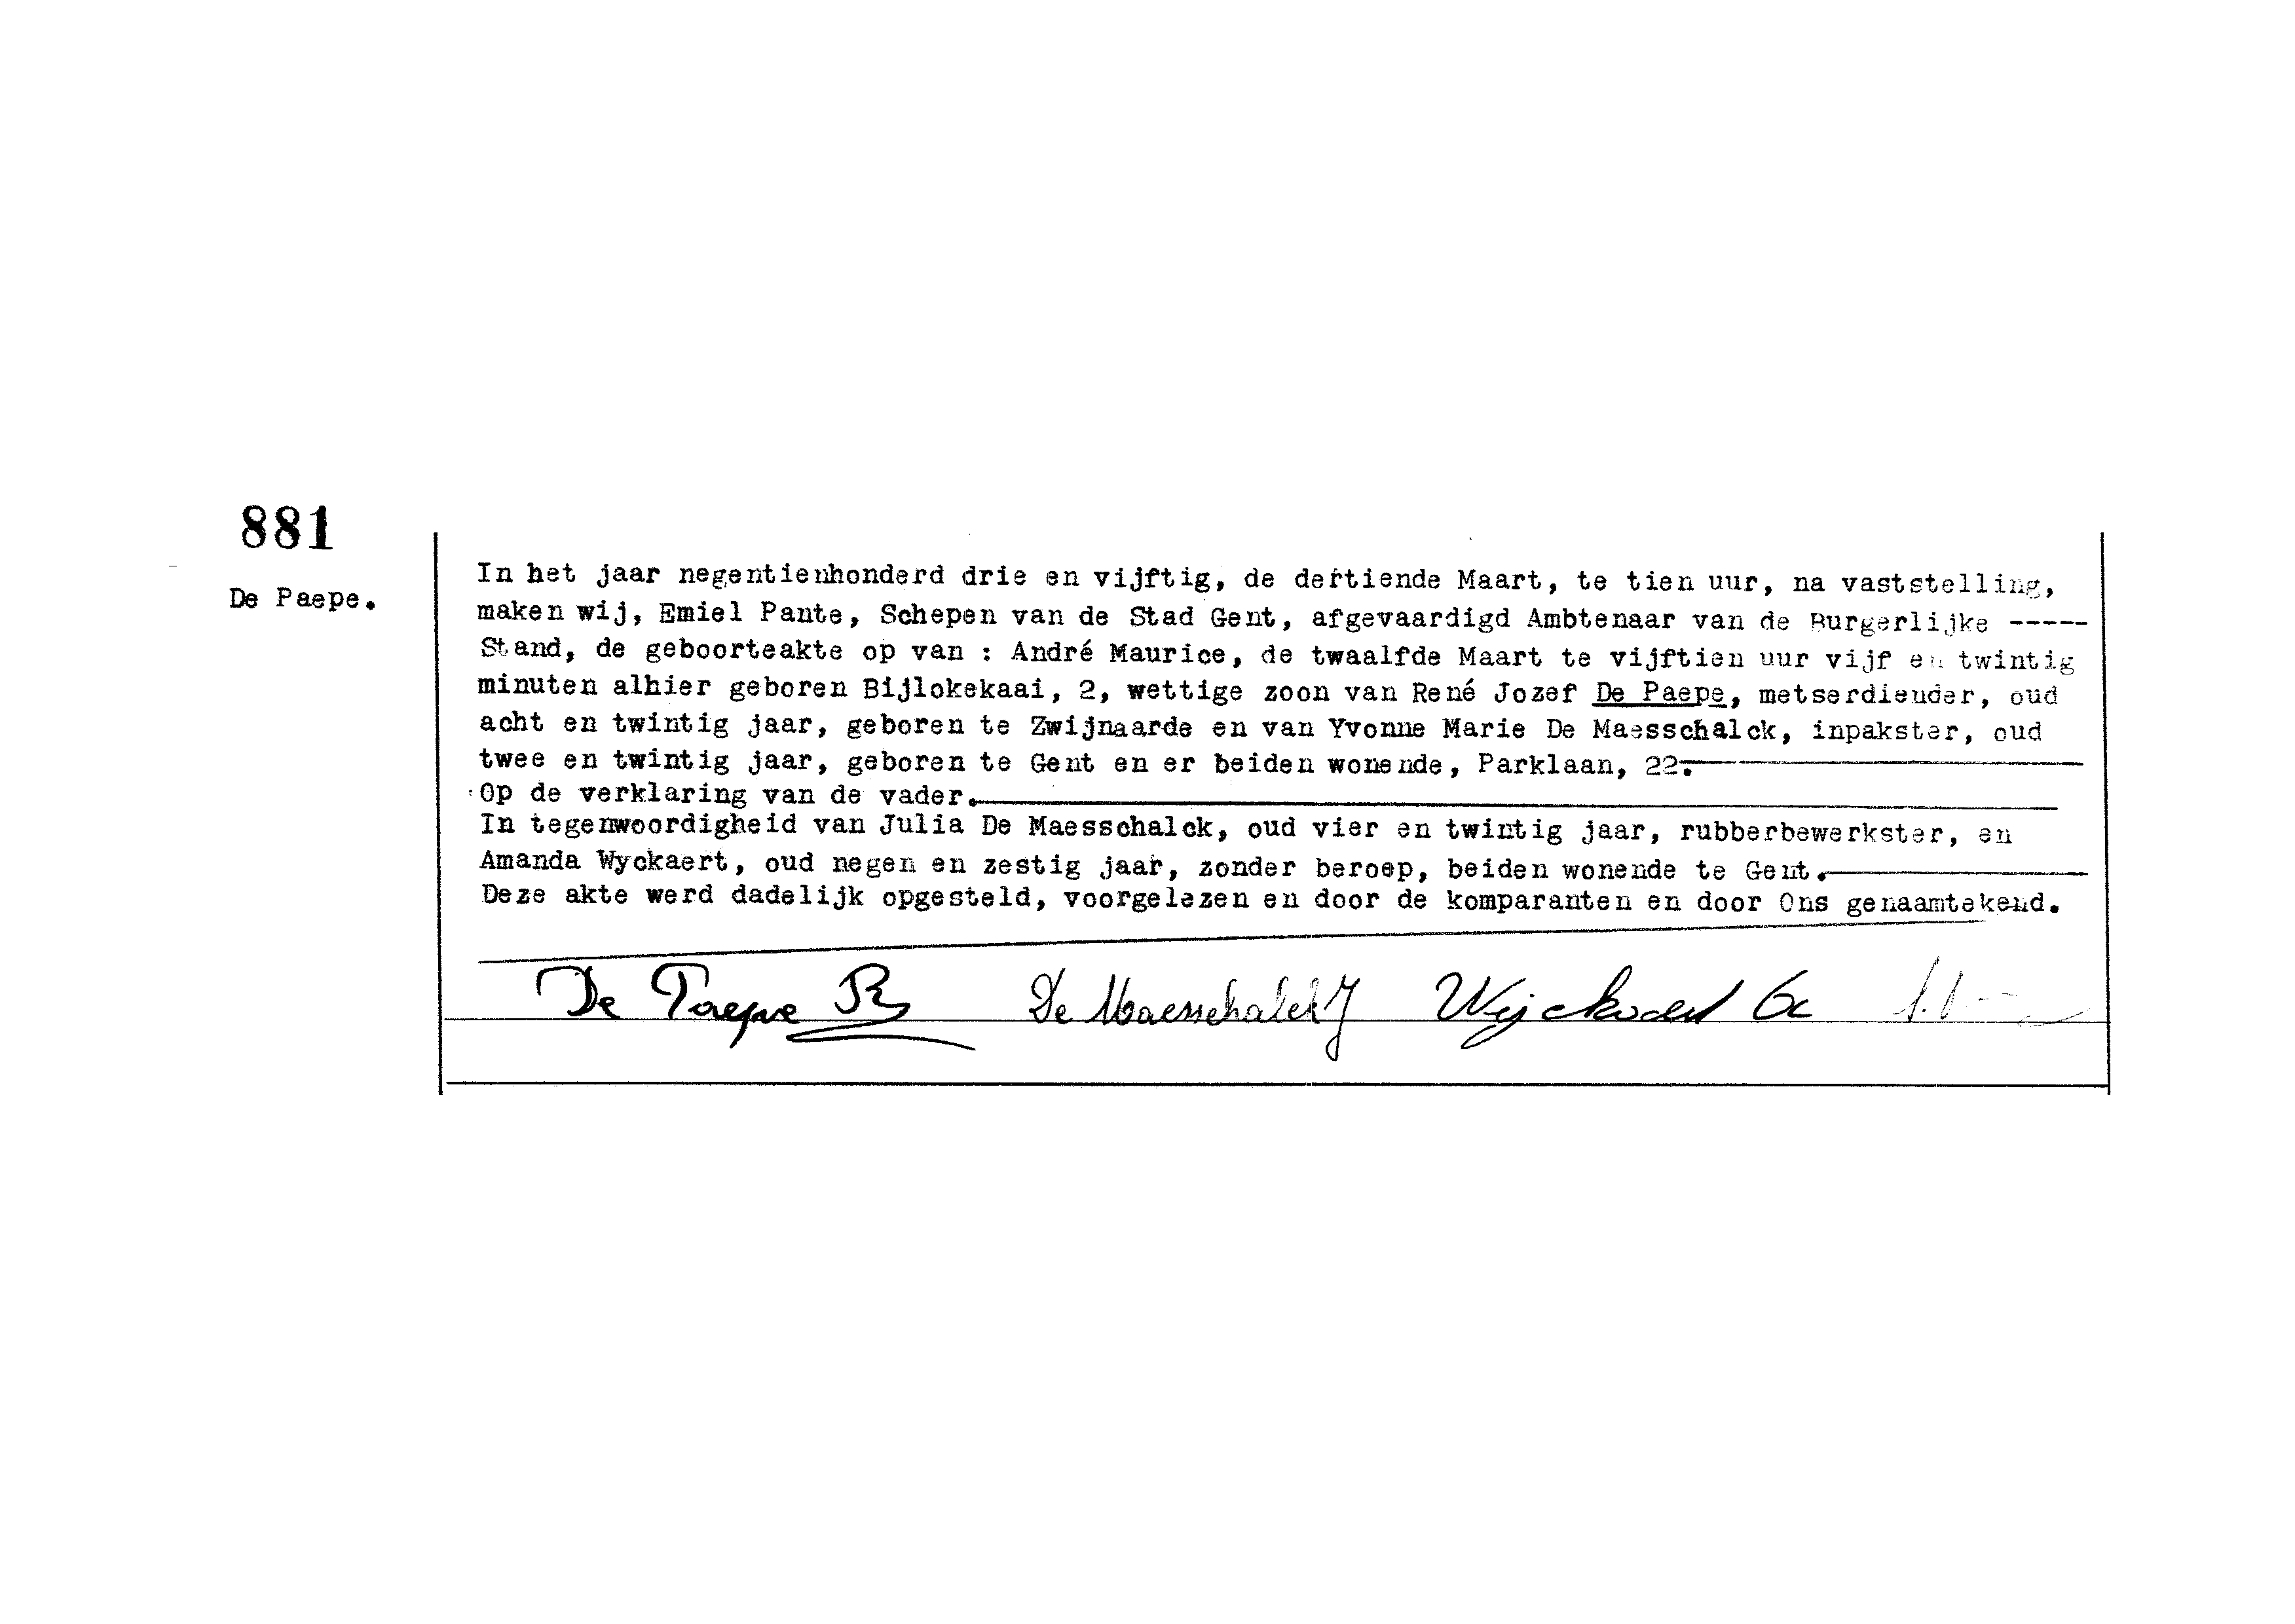 881
De Paepe.
In het jaar negentienhonderd drie en vijftig, de dertiende Maart, te tien uur, na vaststelling,
maken wij, Emiel Pante, Schepen van de Stad Gent, afgevaardigd Ambtenaar van de Burgerlijke -----
Stand, de geboorteakte op van : André Maurice, de twaalfde Maart te vijftien uur vijf en twintig
minuten alhier geboren Bijlokekaai, 2, wettige zoon van René Jozef De Paepe, metserdiender, oud
acht en twintig jaar, geboren te Zwijnaarde en van Yvonne Marie De Maesschalck, inpakster, oud
twee en twintig jaar, geboren te Gent en er beiden wonende, Parklaan, 22.
Op de verklaring van de vader.
In tegenwoordigheid van Julia De Maesschalck, oud vier en twintig jaar, rubberbewerkster, en
Amanda Wyckaert, oud negen en zestig jaar, zonder beroep, beiden wonende te Gent.
Deze akte werd dadelijk opgesteld, voorgelezen en door de komparanten en door Ons genaamtekend.
De Paepe R De Maesschalck J Wyckaert